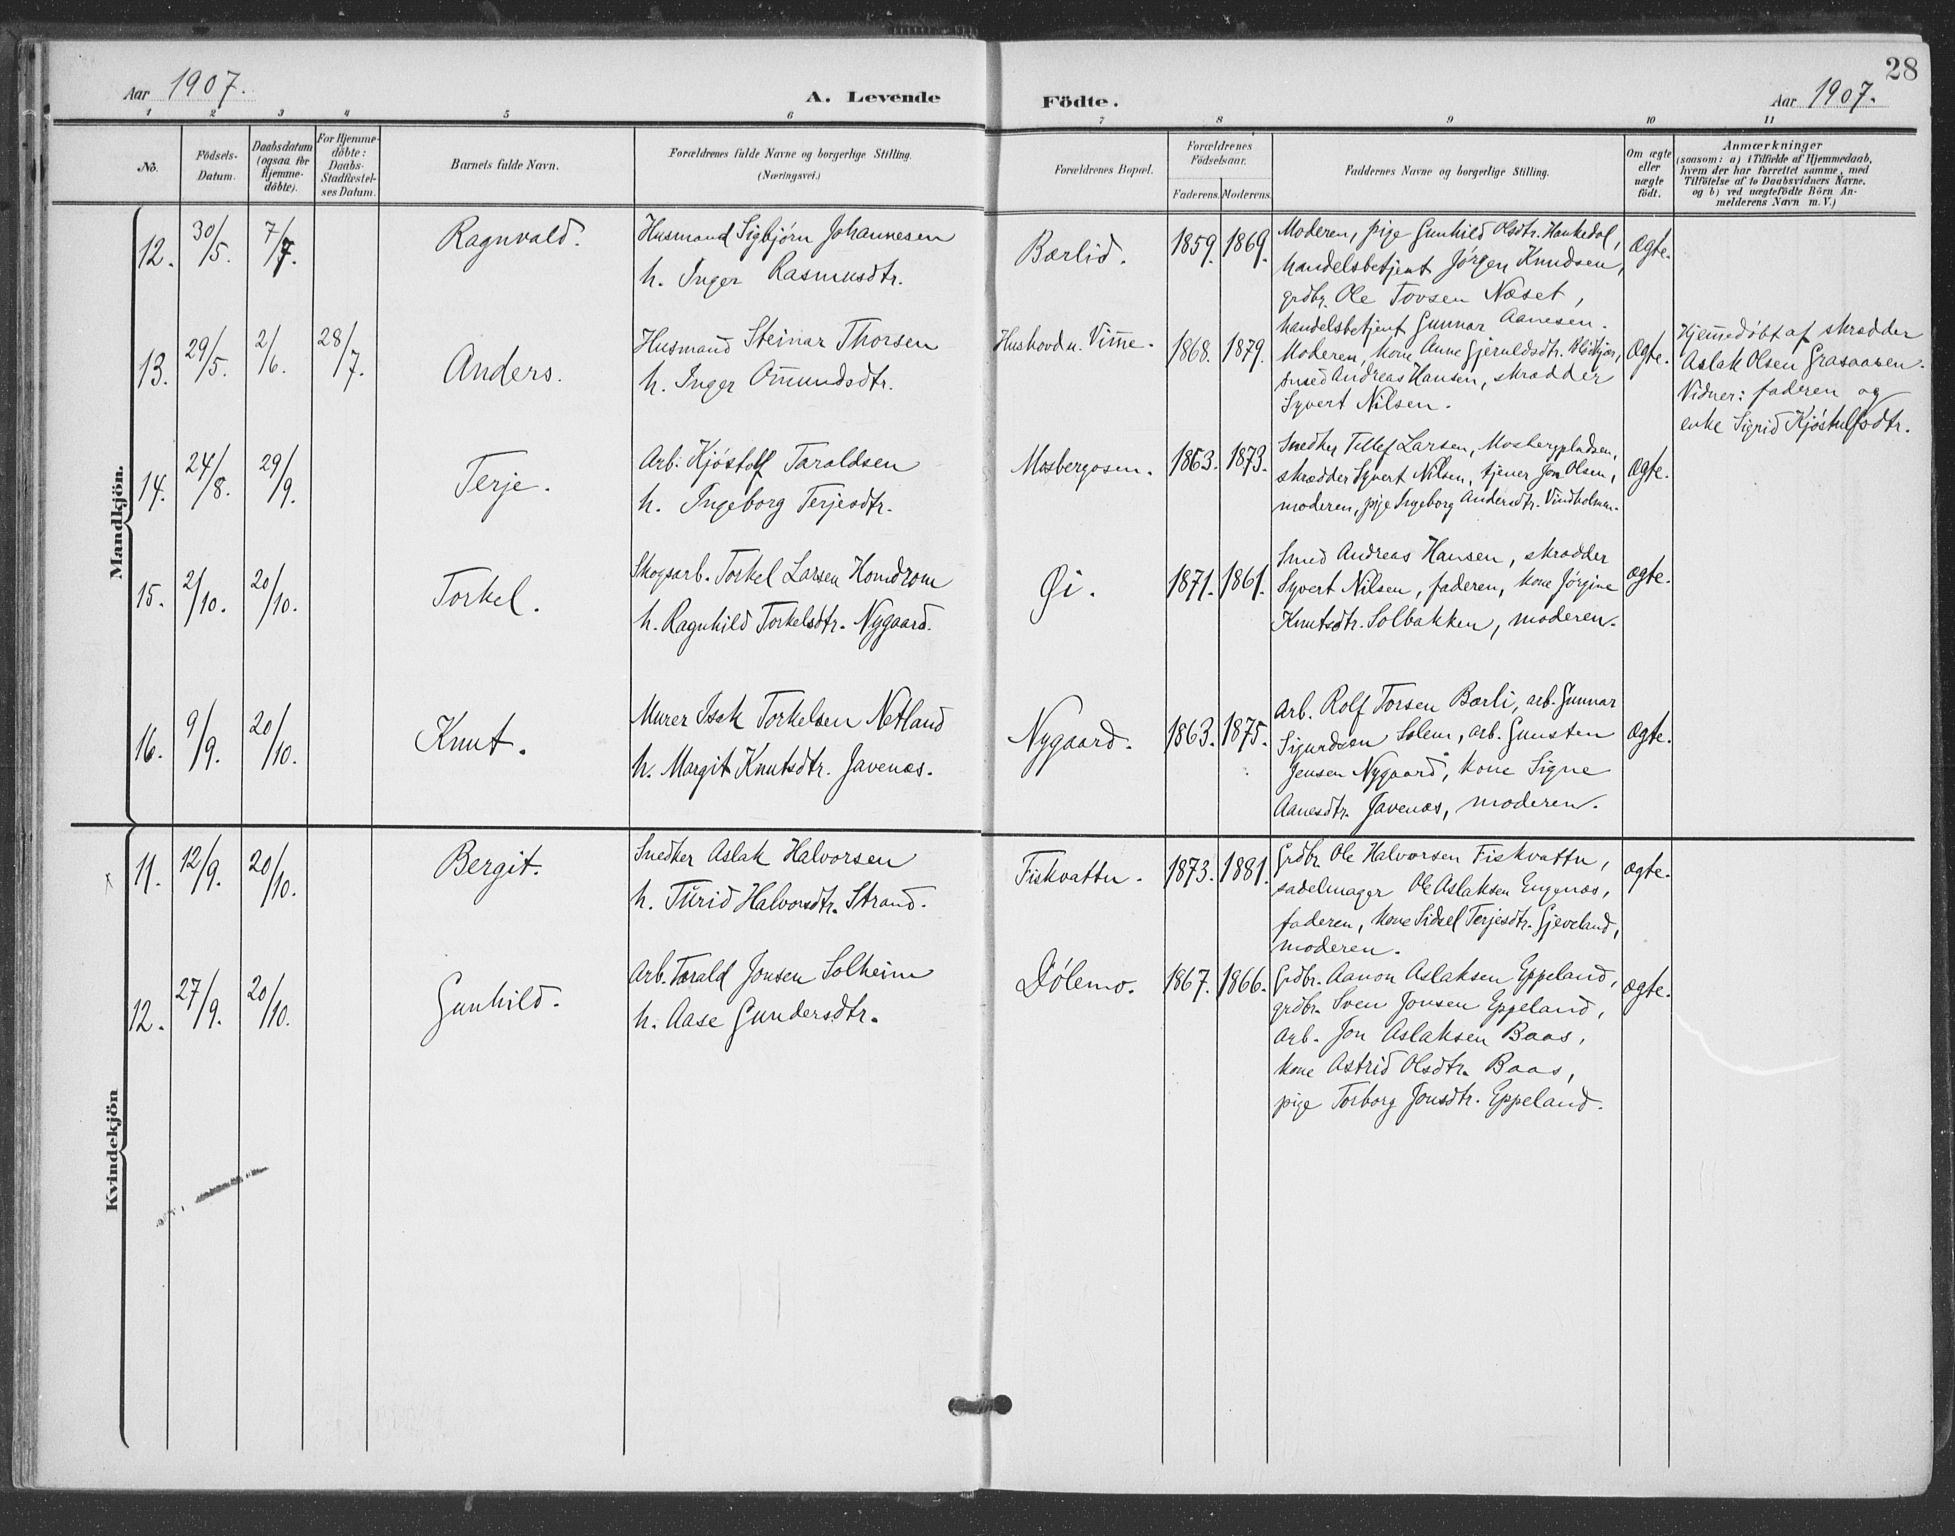 28
Aar 1907.
A. Levende
Födte.
Aar 1907.
1 2 3 4 5 6 7 8 9 10 11
No.
Födsels-
Datum.
Daabsdatum
(ogsaa for
Hjemme-
döbte).
For Hjemme-
döbte:
Daabs-
Stadfæstel-
ses Datum.
Barnets fulde Navn.
Forældrenes fulde Navne og borgerlige Stilling.
(Næringsvei.)
Forældrenes Bopæl.
Forældrenes
Födselsaar.
Faderens. Moderens.
Faddernes Navne og borgerlige Stilling.
Om ægte
eller
uægte
födt.
Anmærkninger
(saasom: a) i Tilfælde af Hjemmedaab,
hvem der har forrettet samme, med
Tilföielse af to Daabsvidners Navne,
og b) ved uægtefödte Börn An-
melderens Navn m. V.)
Mandkjön.
12. 30/5. 7/7. Ragnvald.
Husmand Sigbjørn Johannesen
h. Inger Rasmusdtr.
Bærlid. 1859. 1869.
Moderen, pige Gunhild Olsdtr. Haukedal,
handelsbetjent Jørgen Knudsen,
grdbr. Ole Tovsen Næset,
handelsbetjent Gunnar Aanesen.
ægte.
13. 29/5. 2/6. 28/7. Anders.
Husmand Steinar Thorsen
h. Inger Omundsdtr.
Vimme. 1868. 1879.
Moderen, kone Anne Gjeruldsdtr.
smed Andreas Hansen, skrædder
Syvert Nilsen.
ægte.
Hjemmedøbt af skrædder
Aslak Olsen Grasaasen.
Vidner: faderen og
enke Sigrid Kjøstulfsdtr.
14. 24/8. 29/9. Terje.
Arb. Kjøstolf Taraldsen
h. Ingeborg Terjesdtr.
Mosbergosen. 1863. 1873.
Snedker Tellef Larsen, Mosbergpladsen,
skrædder Syvert Nilsen, tjener Jon Olsen,
moderen, pige Ingeborg Andersdtr. Vindholmen.
ægte.
15. 2/10. 20/10. Torkel.
Skogsarb. Torkel Larsen Homdrom
h. Ragnhild Torkelsdtr. Nygaard.
Øi. 1871. 1861.
Smed Andreas Hansen, skrædder
Syvert Nilsen, faderen, kone Jørgine
Knutsdtr. Solbakken, moderen.
ægte.
16. 9/9. 20/10. Knut.
Murer Isak Torkelsen Netland
h. Margit Knutsdtr. Javenæs.
Nygaard. 1863. 1875.
Arb. Rolf Torsen Bærli, arb. Gunnar
Sigurdsøn Solem, arb. Gunsten
Jensen Nygaard, kone Signe
Aanesdtr. Javenæs, moderen.
ægte.
Kvindekjön
11. 12/9. 20/10. Bergit.
Snedker Aslak Halvorsen
h. Turid Halvorsdtr. Strand.
Fiskvattn. 1873. 1881.
Grdbr. Ole Halvorsen Fiskvattn,
sadelmager Ole Aslaksen Engenæs,
faderen, kone Sidsel Terjesdtr. Gjeveland,
moderen.
ægte.
12. 27/9. 20/10. Gunhild.
Arb. Tarald Jonsen Solheim
h. Aase Gundersdtr.
Dølemo. 1867. 1866.
Grdbr. Aanon Aslaksen Eppeland,
grdbr. Sven Jonsen Eppeland,
Arb. Jon Aslaksen Baas,
kone Astrid Olsdtr. Baas,
pige Torborg Jonsdtr. Eppeland.
ægte.